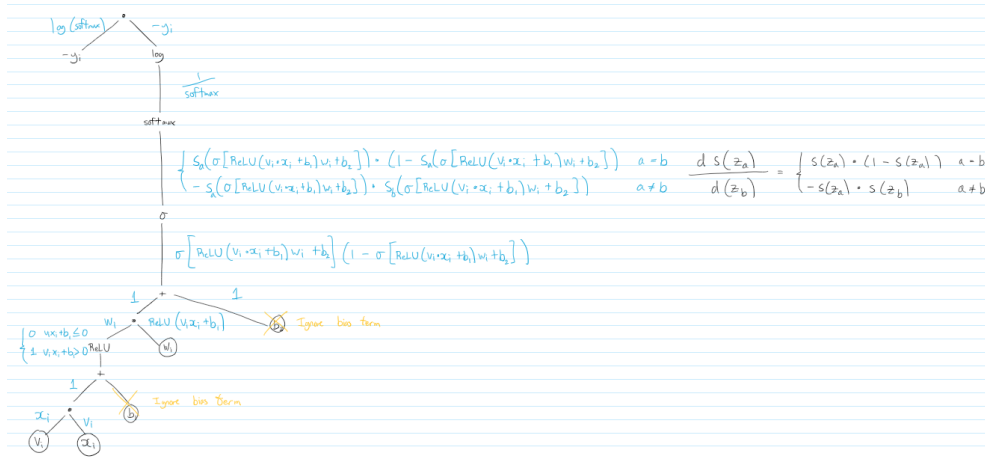 log(softmax) • -yᵢ
-yᵢ log
1/softmax
softmax
{ Sₐ(σ[ReLU(vᵢ•xᵢ+b₁)wᵢ+b₂]) • (1 - Sₐ(σ[ReLU(vᵢ•xᵢ+b₁)wᵢ+b₂]) a=b d S(zₐ) / d(z_b) = { S(zₐ) • (1 - S(zₐ)) a=b
-Sₐ(σ[ReLU(vᵢ•xᵢ+b₁)wᵢ+b₂]) • S_b(σ[ReLU(vᵢ•xᵢ+b₁)wᵢ+b₂]) a≠b -S(zₐ) • S(z_b) a≠b
σ
σ[ReLU(vᵢ•xᵢ+b₁)wᵢ+b₂](1 - σ[ReLU(vᵢ•xᵢ+b₁)wᵢ+b₂])
1 + 1
wᵢ • ReLU(vᵢxᵢ+b₁) b₂ Ignore bias term
{ 0 vᵢxᵢ+b₁≤0
1 vᵢxᵢ+b₁>0 ReLU wᵢ
+
1 b₁ Ignore bias term
xᵢ • vᵢ
vᵢ xᵢ